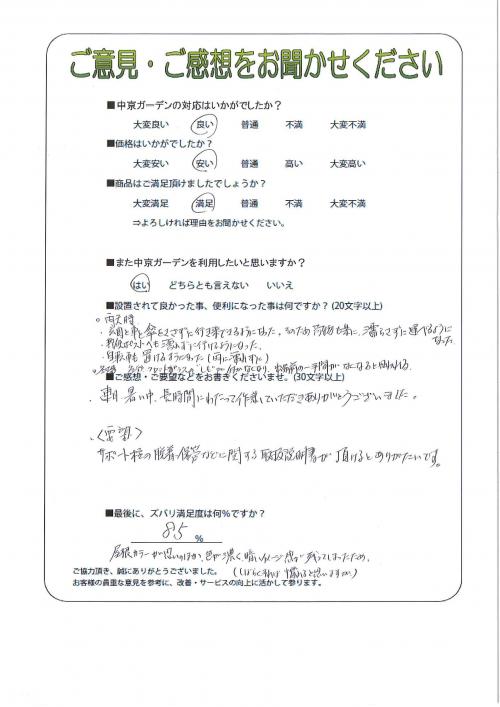 ご意見・ご感想をお聞かせください
■中京ガーデンの対応はいかがでしたか？
大変良い 良い 普通 不満 大変不満
■価格はいかがでしたか？
大変安い 安い 普通 高い 大変高い
■商品はご満足頂けましたでしょうか？
大変満足 満足 普通 不満 大変不満
⇒よろしければ理由をお聞かせください。
■また中京ガーデンを利用したいと思いますか？
はい どちらとも言えない いいえ
■設置されて良かった事、便利になった事は何ですか？(20文字以上)
○雨天時
・玄関と車と傘をささずに行き来できるようになった。そのため荷物も楽に、濡らさずに運べるように
なった
・郵便ポストへも濡れずに行けるようになった。
・自転車も置けるようになった(雨に濡れずに)
■ご感想・ご要望などをお書きくださいませ。(30文字以上)
・連日、暑い中、長時間にわたって作業していただきありがとうございました。
・〈要望〉
サポート柱の脱着・保管などに関する取扱説明書が頂けるとありがたいです。
■最後に、ズバリ満足度は何％ですか？
85 ％
屋根カラーが思いのほか、色が濃く暗いイメージ感が残ってしまったため。
(しばらくすれば慣れると思いますが)
ご協力頂き、誠にありがとうございました。
お客様の貴重な意見を参考に、改善・サービスの向上に活かして参ります。